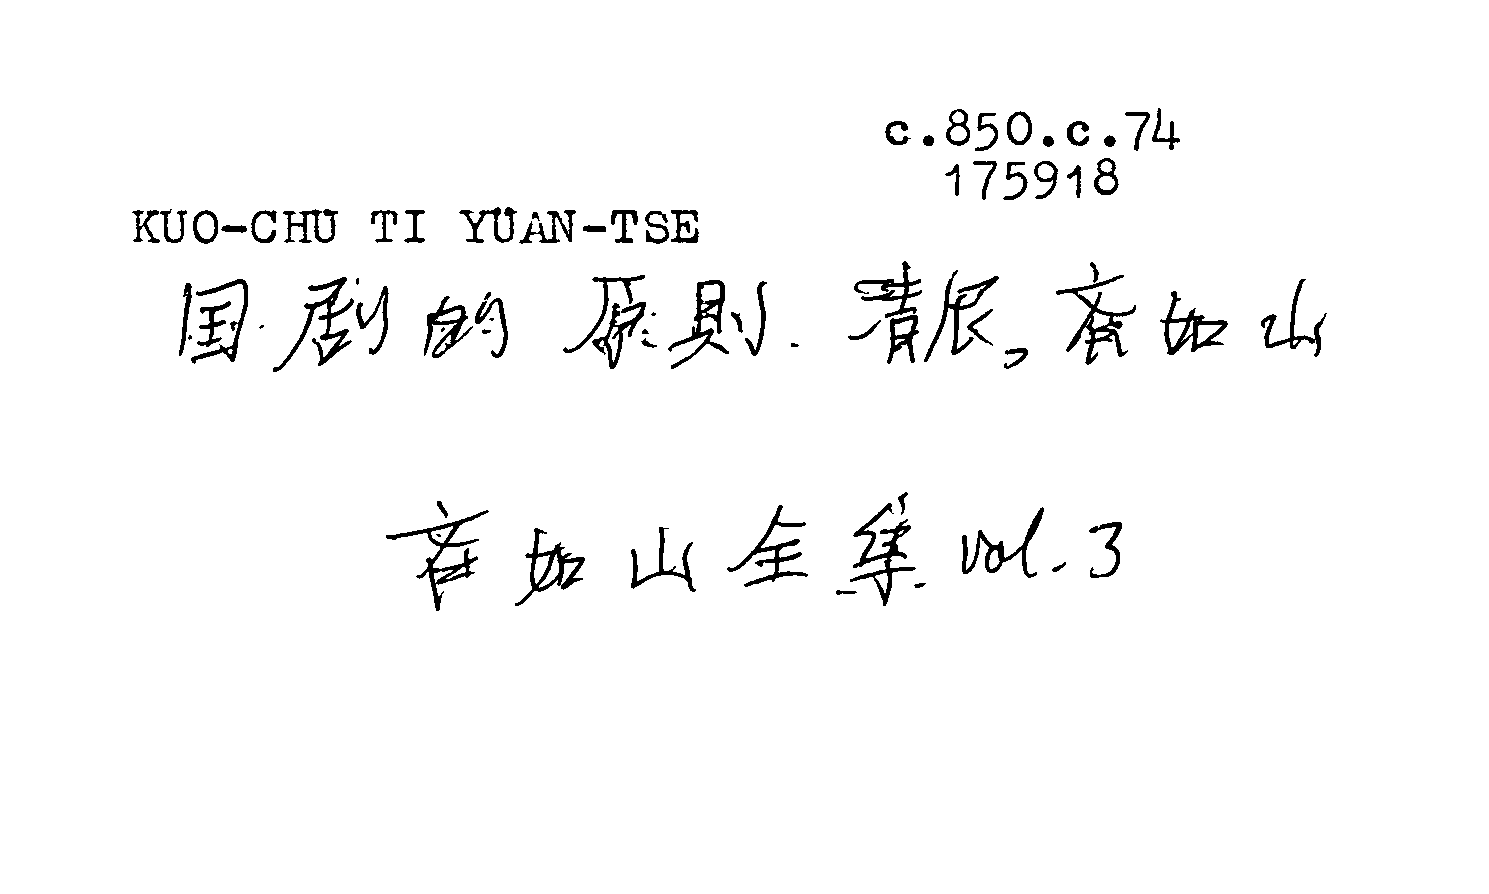 c.850.c.74
175918
KUO-CHU TI YUAN-TSE
国剧的 原則. 清辰, 斉如山
斉如山全集 vol. 3